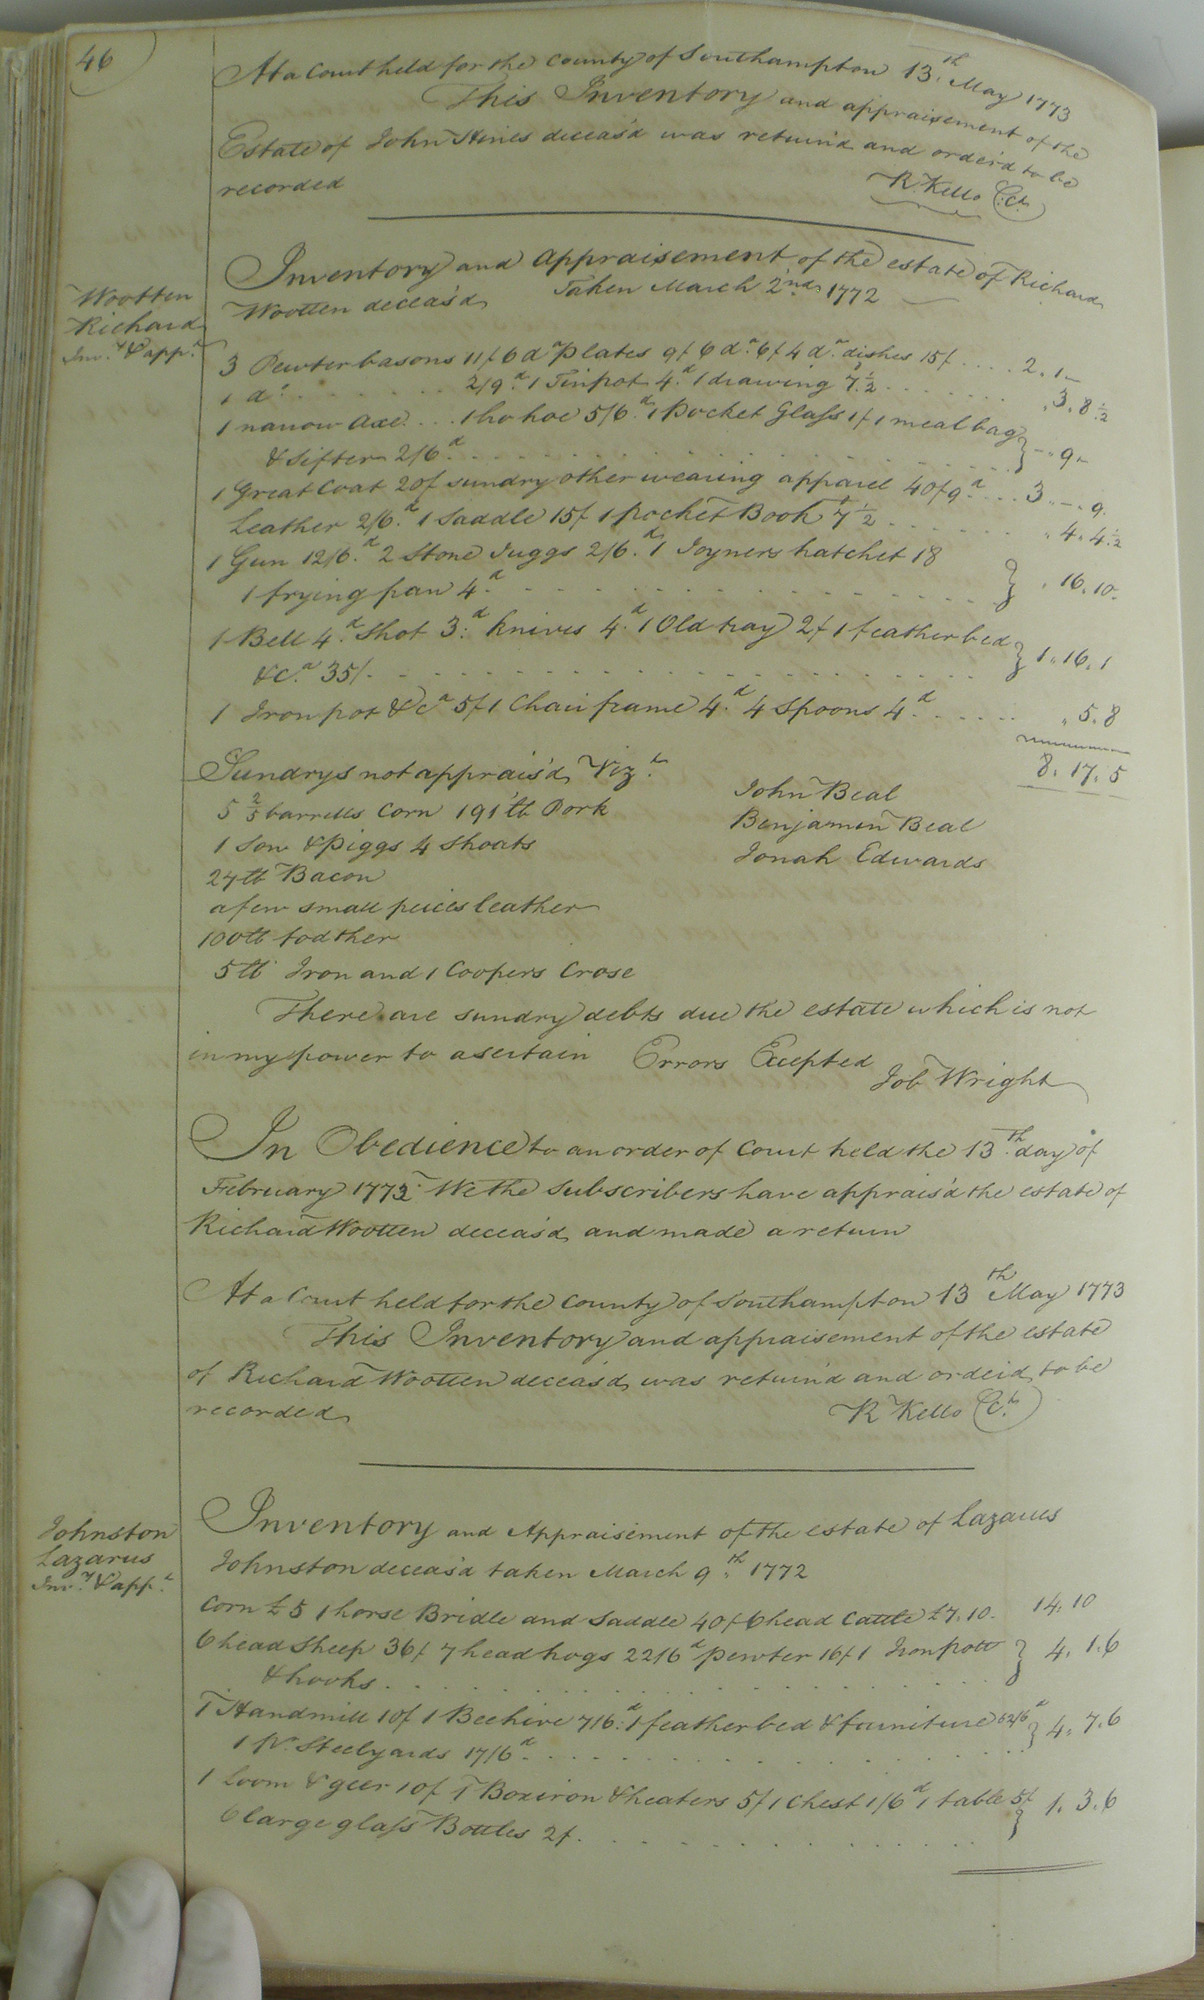 46
At a Court held for the County of Southampton 13th May 1773
This Inventory and appraisement of the
Estate of John Hines deceas'd was return'd and order'd to be
recorded
R Kello Cl.Ct.
Inventory and Appraisement of the estate of Richard
Wootten deceas'd Taken March 2nd 1772
Wootten
Richard
Inv.y & app.t
3 Pewter basons 11/ 6 do plates 9/ 6 do 6/ 4 do dishes 15/ .... 2.1 -
1 do ...... 2/9d 1 Tinpot 4d 1 drawing 7½ ...... .3.8½
1 narrow axe ... 1 ho hoe 5/6d 1 Pocket Glass 1/ 1 meal bag } - " 9 -
& Sifter 2/6d ......
1 Great Coat 20/ sundry other wearing apparel 40/9d ... 3. - . 9
Leather 2/6d 1 Saddle 15/ 1 pocket Book 7½ ...... . 4. 4½
1 Gun 12/6d 2 Stone Juggs 2/6d 1 Joyners hatchet 18
1 frying pan 4d ...... } . 16. 10.
1 Bell 4d Shot 3d Knives 4d 1 Old tray 2/ 1 feather bed
&ca 35/ ...... } 1. 16. 1
1 Iron pot &ca 5/ 1 Chair frame 4d 4 Spoons 4d ...... . 5. 8
8. 17. 5
Sundrys not apprais'd Vizt
5 2/5 barrells Corn 191 lb Pork
1 Sow & Piggs 4 Shoats
24 lb Bacon
a few small peices leather
100 lb fodther
5 lb Iron and 1 Coopers Crose
John Beal
Benjamin Beal
Jonah Edwards
There are sundry debts due the estate which is not
in my power to asertain Errors Excepted
Job Wright
In Obedience to an order of Court held the 13th day of
February 1772 We the Subscribers have apprais'd the estate of
Richard Wootten deceas'd and made a return
At a Court held for the County of Southampton 13th May 1773
This Inventory and appraisement of the estate
of Richard Wootten deceas'd was return'd and order'd to be
recorded
R Kello Cl.Ct.
Johnston
Lazarus
Inv.y & app.t
Inventory and Appraisement of the estate of Lazarus
Johnston deceas'd taken March 9th 1772
Corn £5 1 horse Bridle and Saddle 40/ 6 head Cattle £7.10. 14. 10
6 head Sheep 36/ 7 head hogs 22/6d Pewter 16/ 1 Iron pott
& hooks ...... } 4. 1. 6
1 Handmill 10/ 1 Beehive 7/6d 1 feather bed & furniture 52/6d
1 Pr Steelyards 17/6d ...... } 4. 7. 6
1 Loom & geer 10/ 1 Box iron & heaters 5/ 1 Chest 1/6d 1 table 5/
6 large glass Bottles 2/. ...... } 1. 3. 6